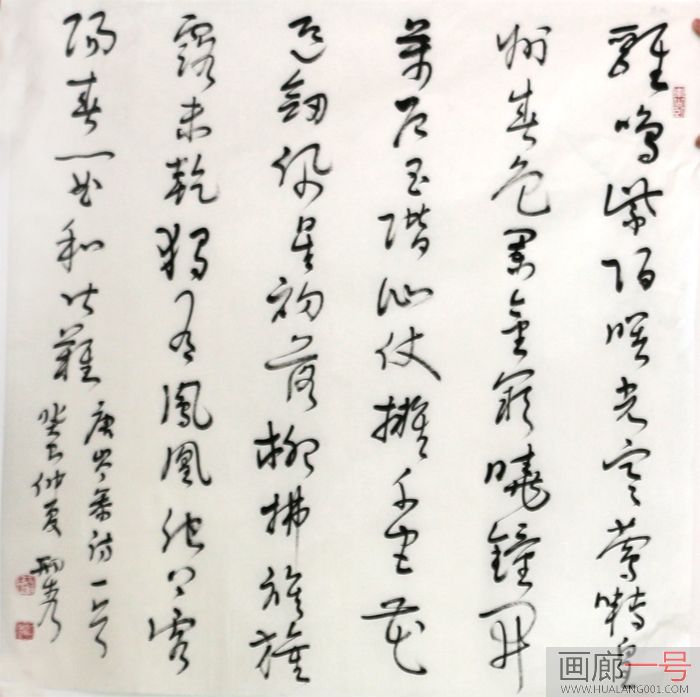 雞鳴紫陌曙光寒鶯囀皇
州春色闌金闕曉鐘開
萬戶玉階仙仗擁千官花
迎劍佩星初落柳拂旌旗
露未乾獨有鳳凰池上客
陽春一曲和皆難
唐岑參詩一首
癸巳仲夏
画廊一号
WWW.HUALANG001.COM